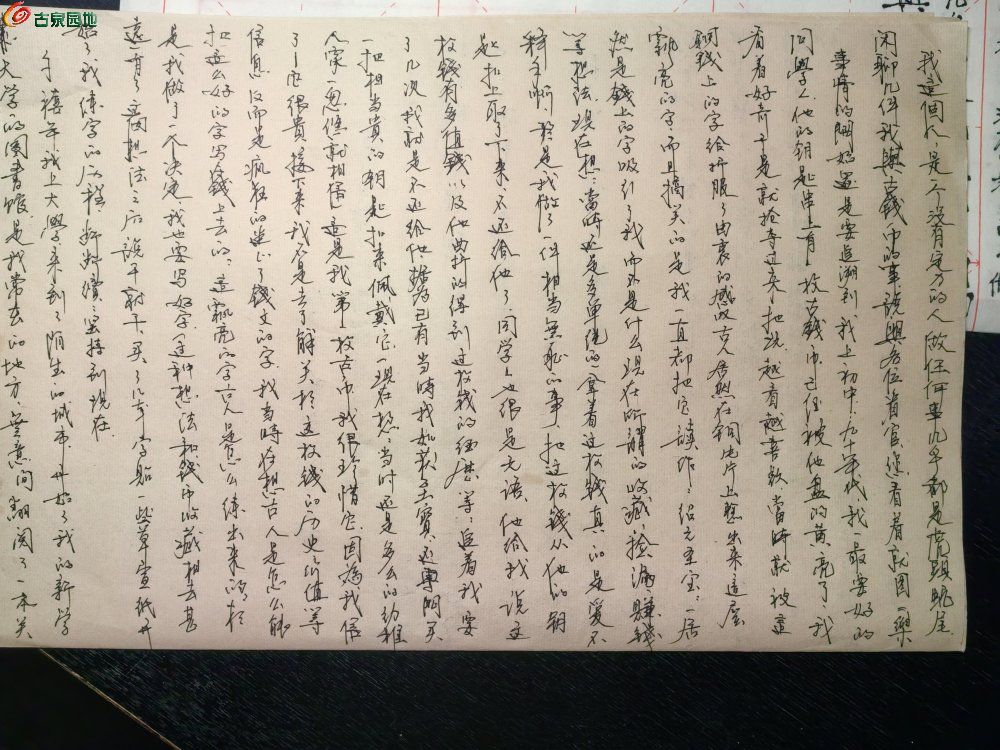 古泉园地
我這個人,是个没有定力的人做任何事几乎都是虎頭蛇尾
闲聊几件我與古錢币的事談與各位省官,您看着就图一樂
事情的開始還是要追溯到,我上初中,九十年代,我一最要好的
同學,他的钥匙串上有一枚古錢币已经被他盘的黄亮了,我
看着好奇于是就抢夺过来,把玩越看越喜欢當時就被這
銅錢上的字给折服了由衷的感叹古人居然在铜片上整出来這麼
飘亮的字而且搞笑的是我一直都把它讀作:绍元至宝:居
然是錢上的字吸引了我而不是什么現在所謂的收藏、撿漏、賺錢
等想法,現在想,當時还是多单純的,拿着这枚錢真的是愛不
释手啊,於是我做了一件相当無耻的事,把这枚錢从他的钥
匙扣上取了下来,不还给他了,同学人也很是无语,他给我说这
枚錢有多值錢以及他曲折的得到这枚錢的经歷等,追着我要
了几次我就是不还给他,據为己有當時我如获至寶,还專門买
一扣相当贵的钥匙扣来佩戴它,現在想,当时还是多么的幼稚
人家一忽悠就相信,這是我第一枚古币,我很珍惜它,因為我信
了它很贵,接下来我不是去了解关於这枚錢的历史、价值等
信息反而是疯狂的迷上了錢文的字,我当時在想古人是怎么能
把這么好的字写到錢上去的,這飘亮的字古人是怎么練出来的,於
是我做了一个决定,我也要写好字,這种想法和錢币收藏相去甚
遠,有了這個想法之后說干就干,买了几本字贴一些草宣纸开
始了我练字的历程,断断續續堅持到現在。
千禧年我上大學来到了陌生的城市,开始了我的新学
大学的圖書館,是我常去的地方,無意间翻阅了一本关